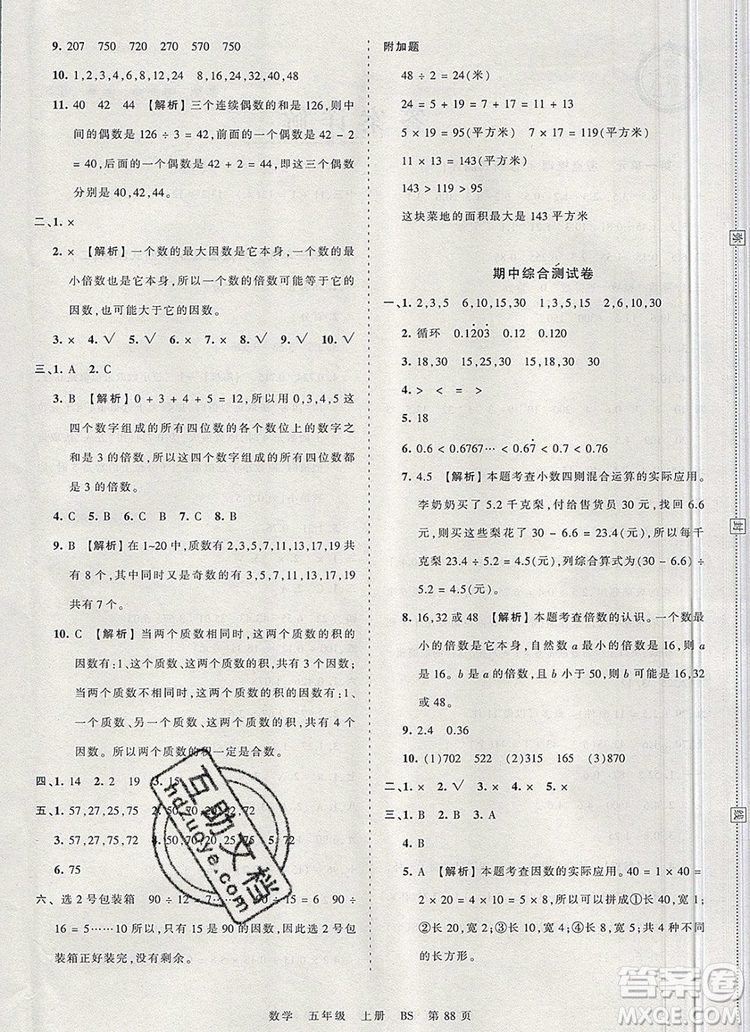 9. 207 750 720 750
10. 1,2,3,4,6,8,12,16,24,48 48
11. 40 42 44 【解析】三个连续偶数的和是126,则中
间的偶数是126÷3=42,前面的一个偶数是42-2
=40,后面的偶数是42+2=44,即这三个偶数
分别是40,42,44。
二、1. ×
2. × 【解析】一个数的最大因数是它本身,一个数的最
小倍数是它本身,所以一个数的倍数可能等于它的
因数,都等于它本身。
3. × 4. √ 5. × 6. √ 7. √ 8. √
三、1. A 2. C
3. B 【解析】0+3+4+5=12,所以用0,3,4,5这
四个数字组成的所有四位数的各个数位上的数字之
和是3的倍数,即用0,3,4,5这四个数字组成的所有
四位数都是3的倍数。
4. C 5. B 6. C 7. C 8. B
9. B 【解析】在1~20中,质数有2,3,5,7,11,13,17,19
共有8个,其中质数又是奇数的有3,5,7,11,13,17,19
共有7个。
10. C 【解析】当两个质数相同时,这两个质数的积的
因数有:1、这个质数、这两个质数的积,共有3个因数;
当两个质数不相同时,这两个质数的积的因数有:1、
一个质数、另一个质数、这两个质数的积,共有4个
因数。所以两个质数的积一定是合数。
四、1. 14 2. 2 19 3. 15
五、1. 57,27,25,75 2. 50,70,20 3.
4. 50,70,20,25,75 5. 57,27,75
6. 75
六、选2号包装箱 90÷12=7…… 90÷15=6 90÷
16=5……10,所以只有15是90的因数,故选2号包
装箱正好装完,没有剩余。
附加题
48÷2=24(米)
24=5+19=7+17=11+13
5×19=95(平方米) 7×17=119(平方米)
11×13=143(平方米)
143>119>95
这块菜地的面积最大是143平方米
期中综合测试卷
一、1. 2,3,5 6,10,15,30 1,15 2,6,10,30
2. 循环 0.1̇203̇ 0.12 0.120
3. 18,30 15,30,45 30
4. > < = >
5. 18
6. 0.6<0.6767…<0.7̇<0.76
7. 4.5 【解析】本题考查小数四则混合运算的实际应用。
李奶奶买了5.2千克梨,付给售货员30元,找回6.6
元,则买这些梨花了30-6.6=23.4(元),那么每
千克梨23.4÷5.2=4.5(元),列综合算式为(30-
6.6)÷5.2=4.5(元)。
8. 16,32或48 【解析】本题考查倍数的认识。一个数最
小的倍数是它本身,a的最小倍数是16,所以a是
16。b是a的倍数,且b小于50,则b可能是16,32
或48。
9. 2.4 0.36
10. (1)702 522 (2)145 (3)150
二、1. √ 2. × 3. × 4. × 5. ×
三、1. B 2. A 3. A 4. B
5. A 【解析】本题考查因数的实际应用。40=1×40=
2×20=4×10=5×8,所以可以拼成①长40,宽1;
②长20,宽2;③长10,宽4;④长8,宽5;共4种不同
的长方形。
数学 五年级 上册 BS 第88页
弥
封
线
互助文档
hdzuoye.com
答案圈
MXQE.COM